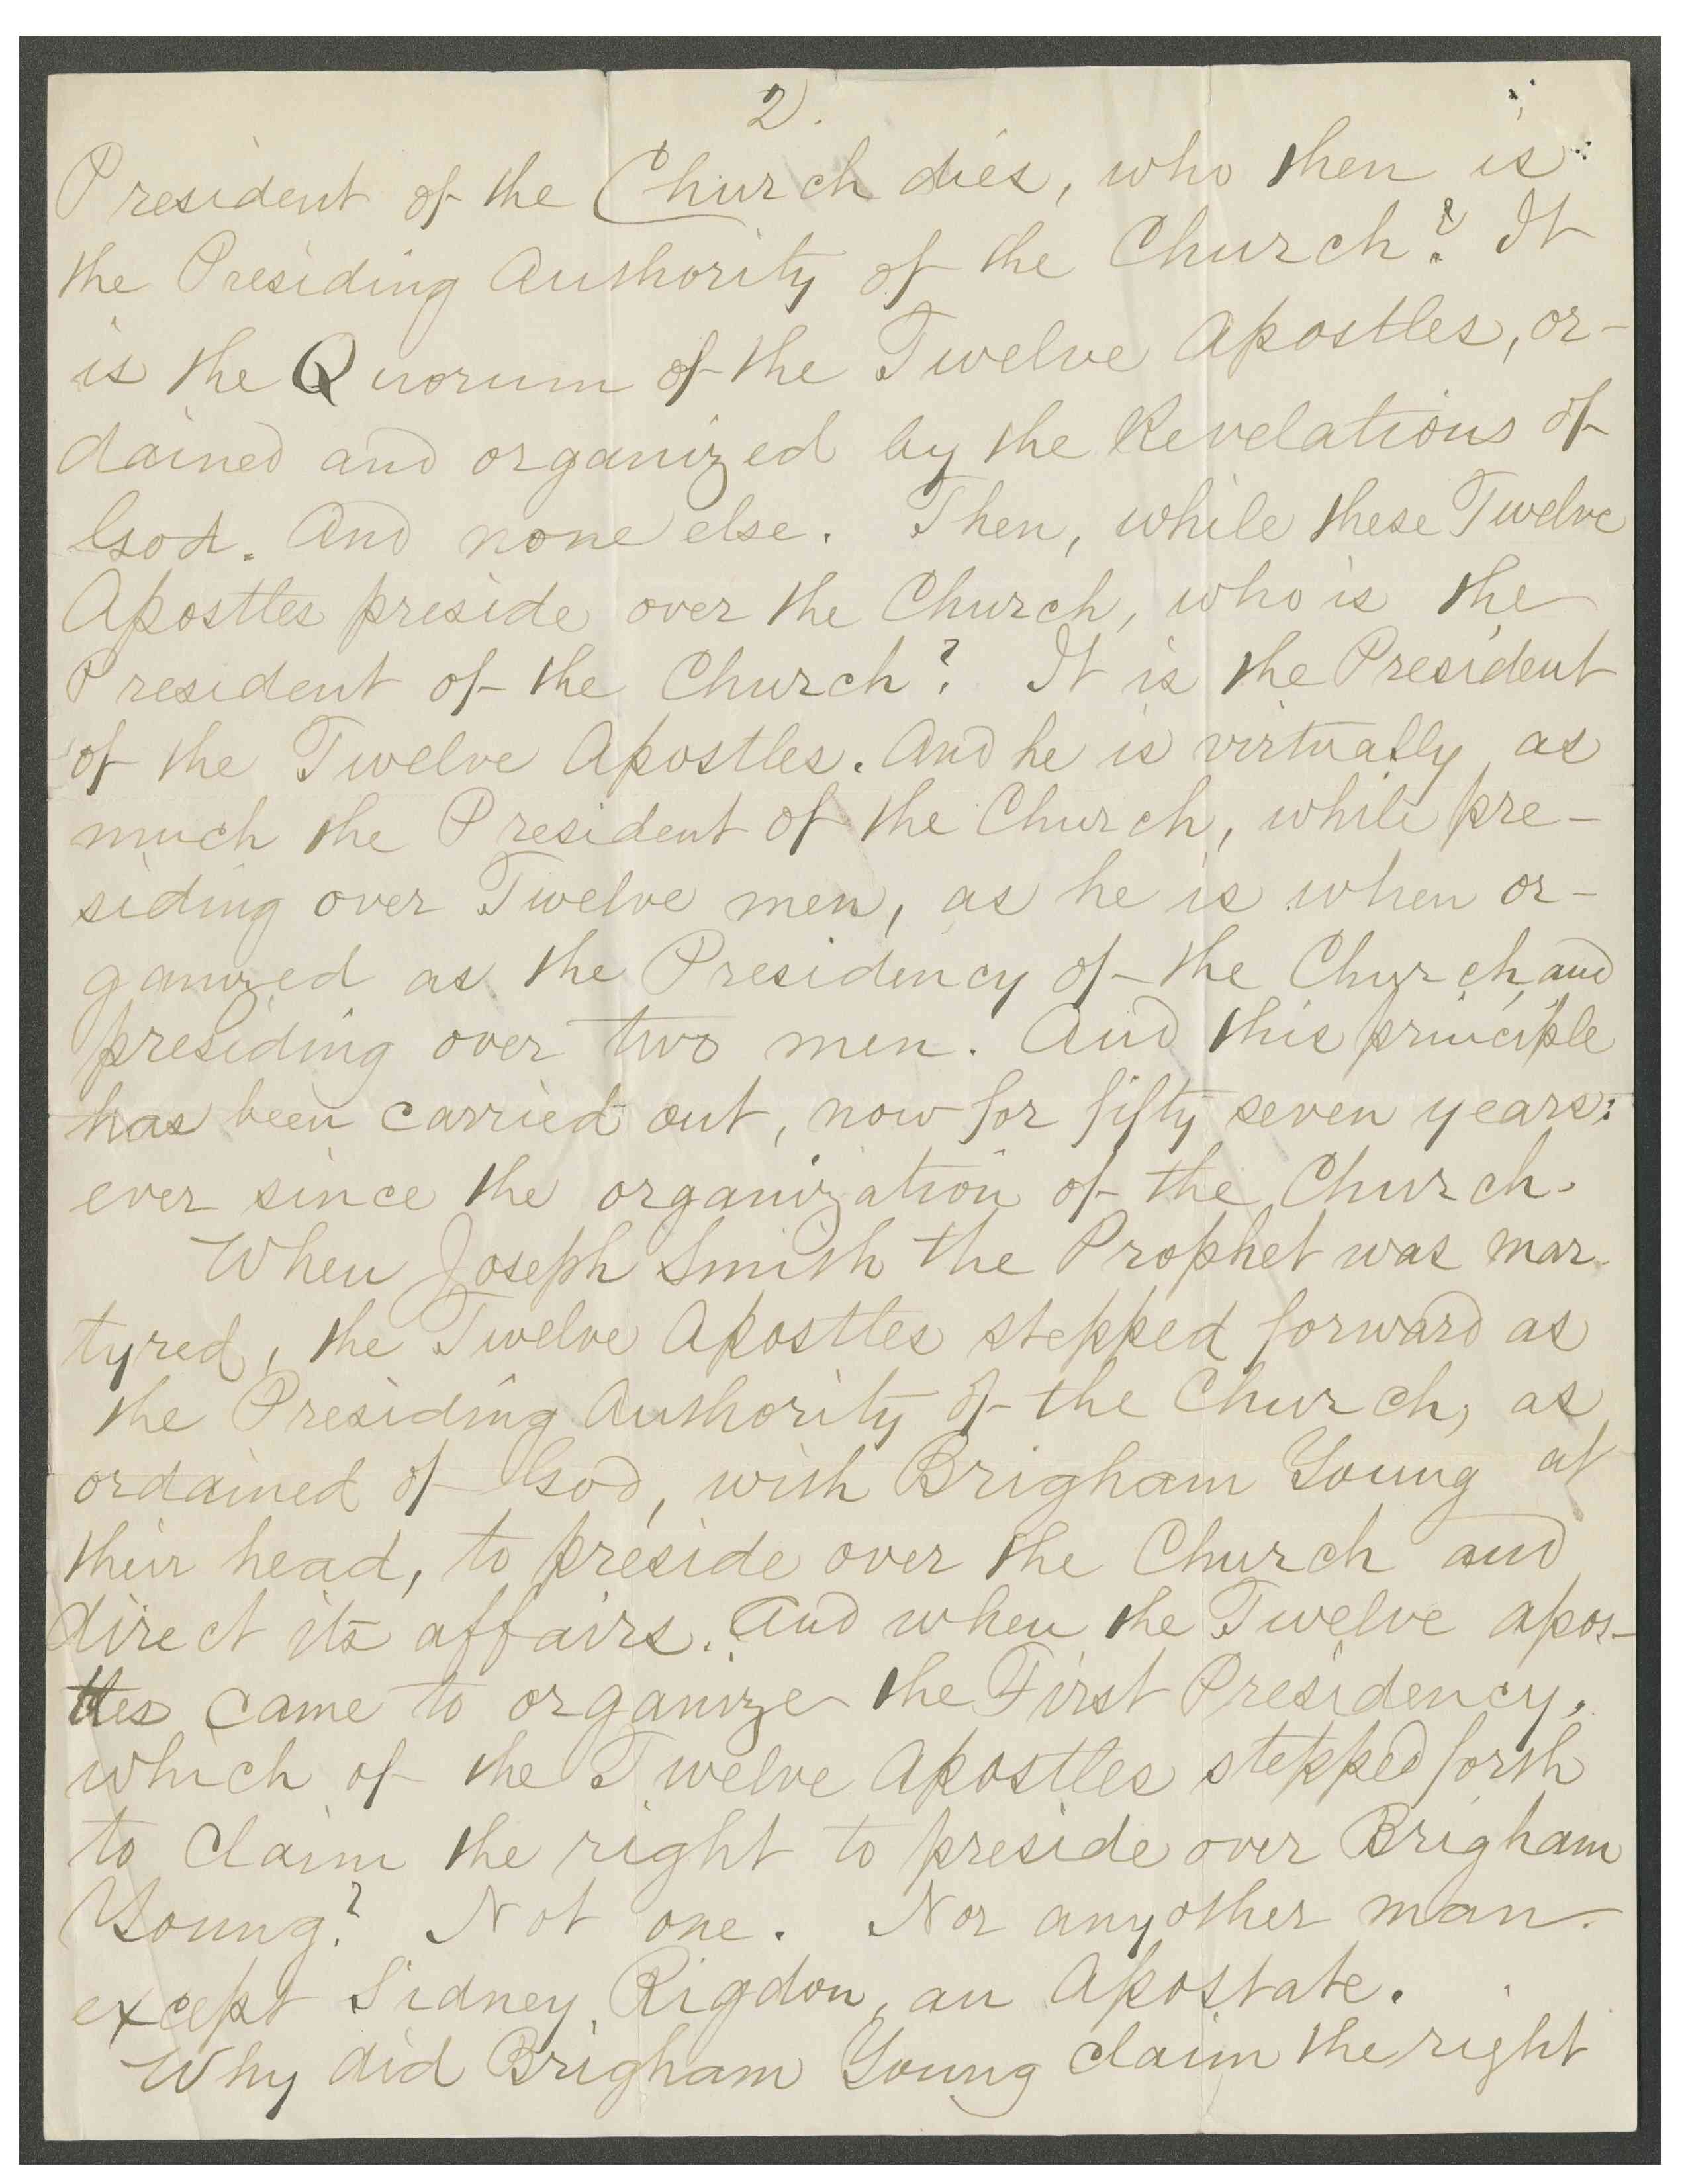 2.
President of the Church dies, who then is
the Presiding Authority of the Church? It
is the Quorum of the Twelve Apostles, or-
dained and organized by the Revelations of
God. And none else. Then, while these Twelve
Apostles preside over the Church, who is the
President of the Church? It is the President
of the Twelve Apostles. And he is virtually as
much the President of the Church, while pre-
siding over Twelve men, as he is when or-
ganized as the Presidency of the Church, and
presiding over two men. And this principle
has been carried out, now for fifty seven years:
ever since the organization of the Church.
When Joseph Smith the Prophet was mar-
tyred, the Twelve Apostles stepped forward as
the Presiding Authority of the Church, as
ordained of God, with Brigham Young at
their head, to preside over the Church and
direct its affairs. And when the Twelve apos-
tles came to organize the First Presidency,
which of the Twelve Apostles stepped forth
to claim the right to preside over Brigham
Young? Not one. Nor any other man
except Sidney Rigdon, an Apostate.
Why did Brigham Young claim the right